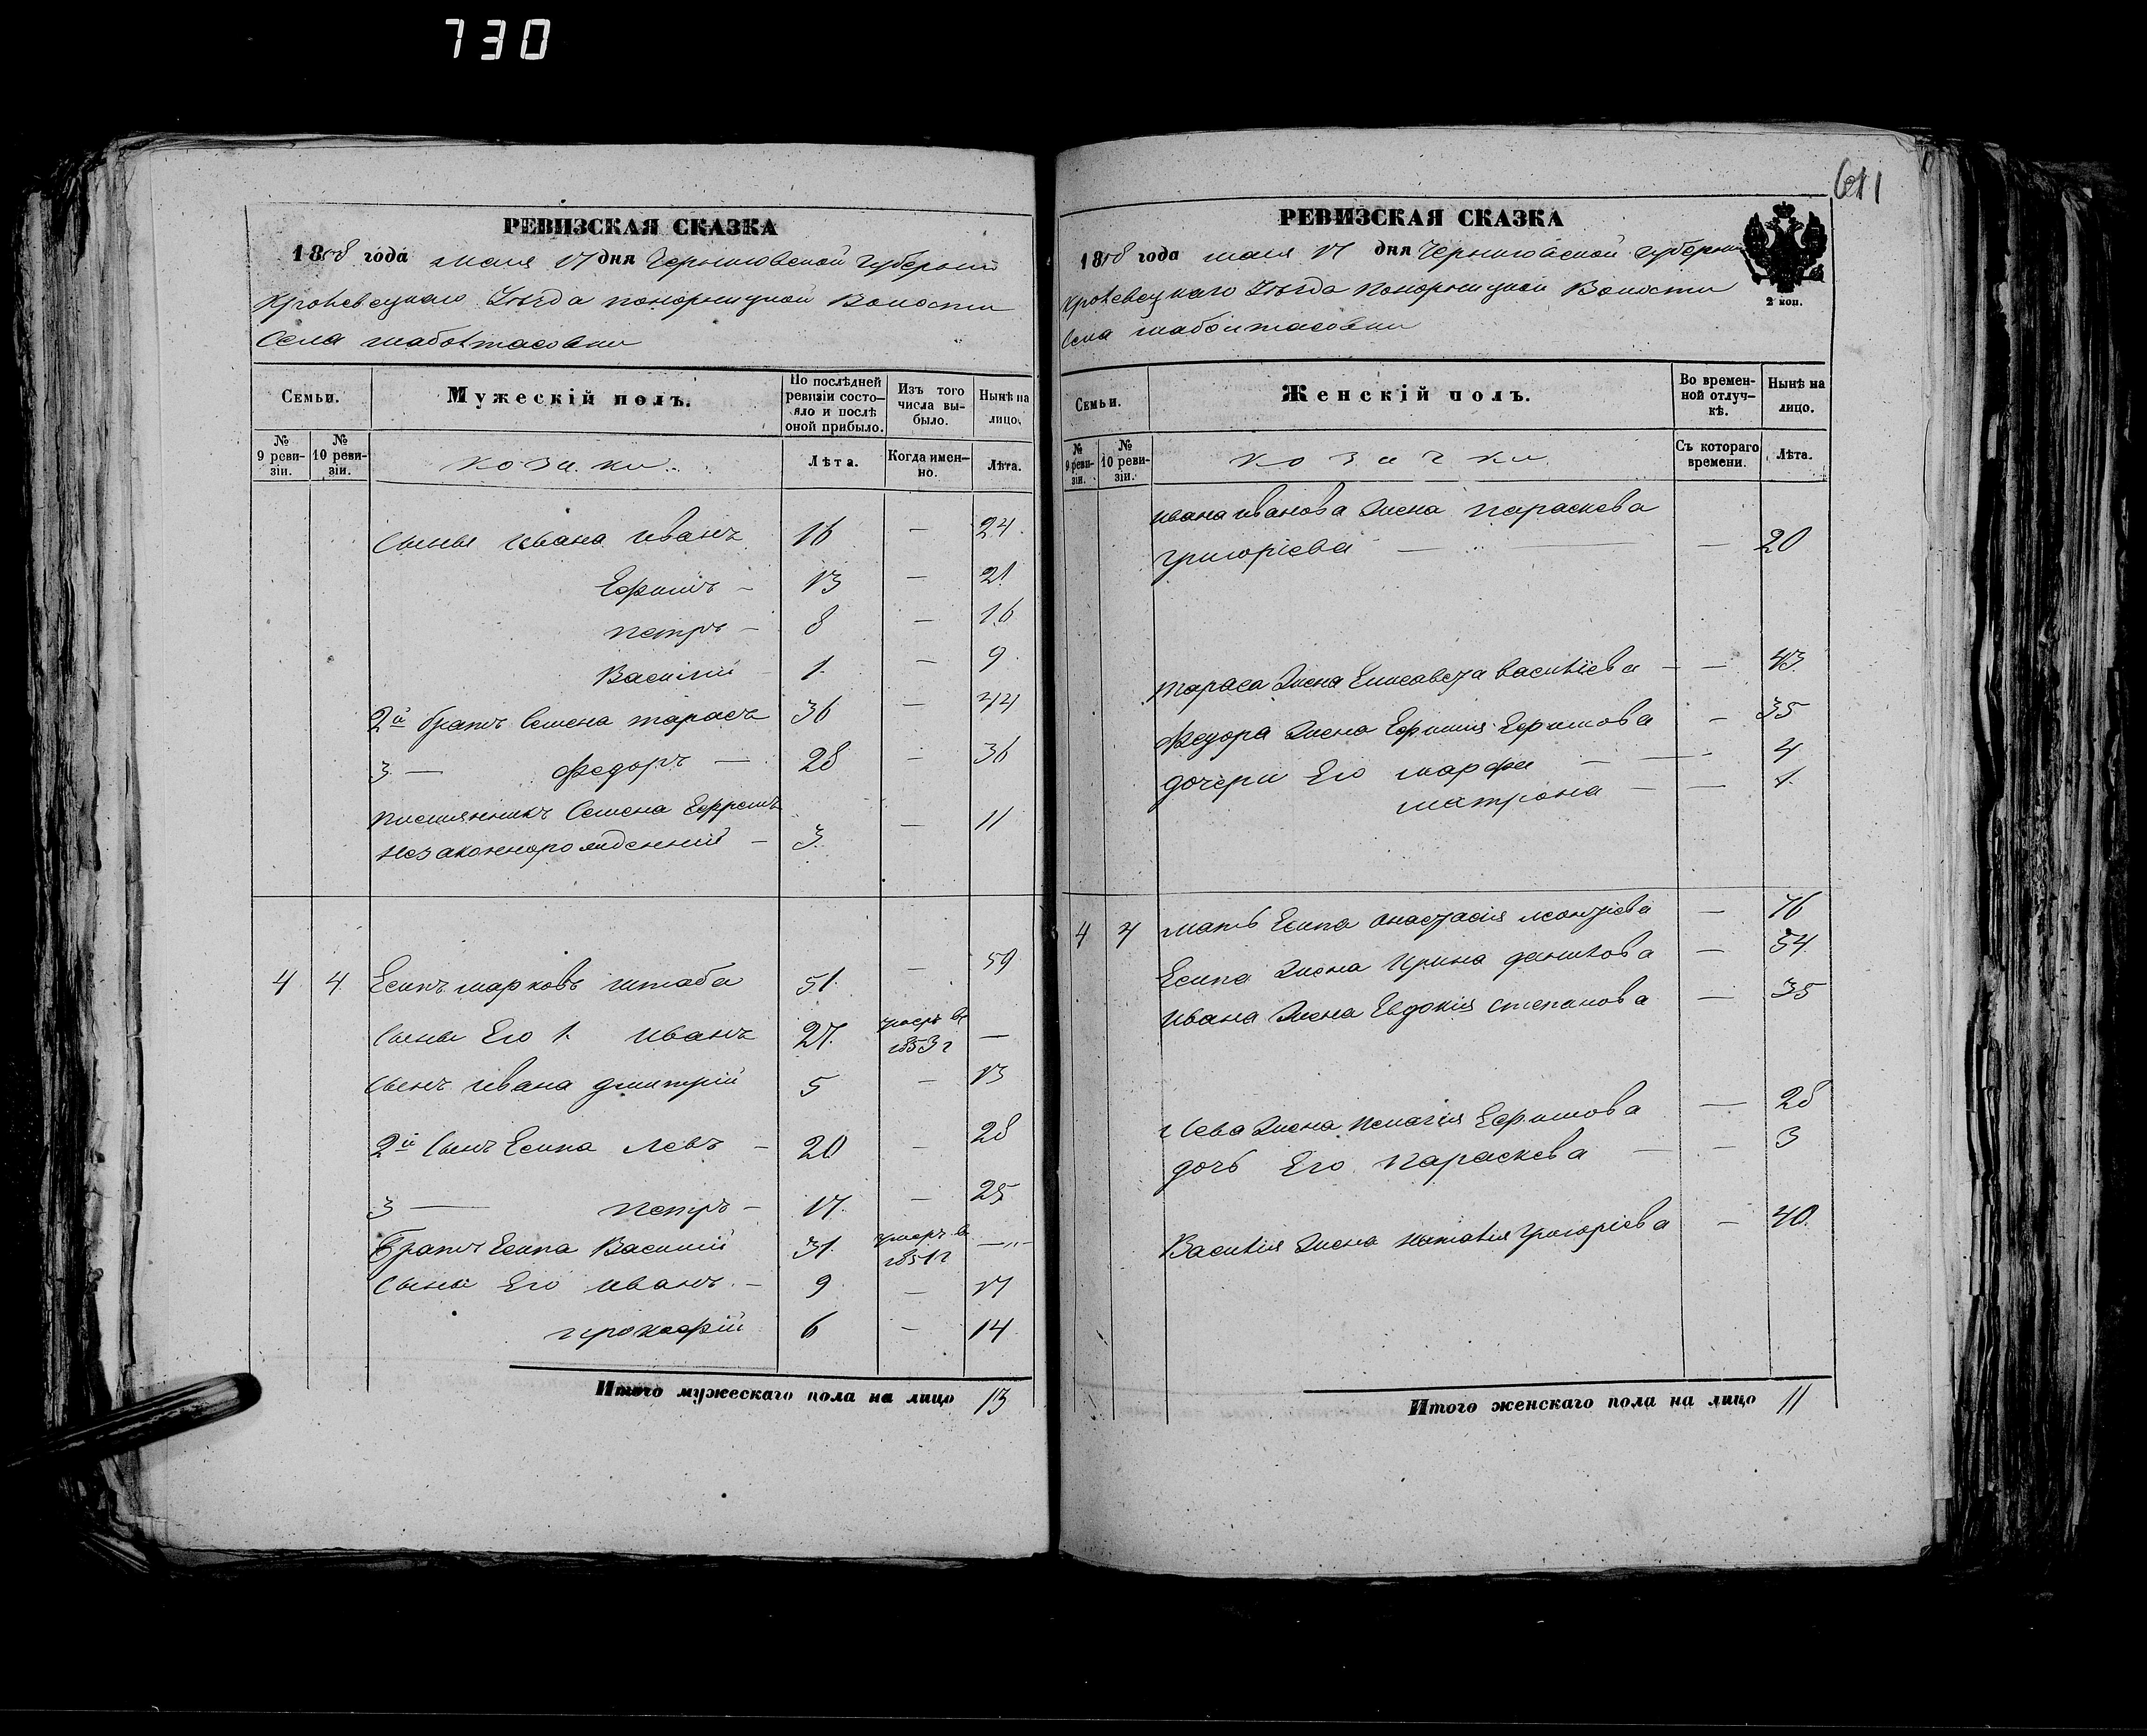 730
611
РЕВИЗСКАЯ СКАЗКА
1858 года мая 17 дня Черниговской Губернии
Кролевецкаго Уезда понорницкой Волости
Села шабалтасовки
Семьи.
Мужескій полъ.
По послѣдней ревизіи состояло и послѣ оной прибыло.
Изъ того числа выбыло.
Нынѣ на лицо.
№ 9 ревизіи.
№ 10 ревизіи.
козаки
Лѣта.
Когда именно.
Лѣта.
Сыны Ивана Иванъ 16 — 24
Ефимъ — 13 — 21
петръ — 8 — 16
Василій — 1. — 9
2й братъ Семена тарасъ 36 — 44
3 — федоръ — 28 — 36
племянникъ Семена Ефремъ
незаконнорожденній — 3. — 11
4 4 Есипъ марковъ штаба 51. — 59
Сыны Его 1. Иванъ 27. умеръ въ 1853 г —
Сынъ Ивана дмитрій 5 — 13
2й Сынъ Есипа Левъ — 20 — 28
3 — петръ — 17. — 25
Братъ Есипа Василій 31. умеръ въ 1851 г —„—
Сыны Его Иванъ — 9 — 17
прокофій 6 — 14
Итого мужескаго пола на лицо 13
РЕВИЗСКАЯ СКАЗКА
1858 года мая 17 дня Черниговской губернии
Кролевецкаго Уезда понорницкой Волости
Села шабалтасовки
2 коп.
Семьи.
Женскій полъ.
Во временной отлучкѣ.
Нынѣ на лицо.
№ 9 ревизіи.
№ 10 ревизіи.
козачки
Съ котораго времени.
Лѣта.
Ивана Иванова жена параскева
григоріева — — 20
тараса жена Елисавета василіева — — 43
федора жена Ефимия Ефимова — 35
дочери Его марфа — — 4
матрона — — 1.
4 4 мать Есипа анастасія леонтіева — 76
Есипа жена Ирина данилова — 54
Ивана жена Евдокія степанова — 35
Лева жена пелагия Ефимова — 28
дочь Его параскева — — 3
Василия жена наталия григоріева — 40.
Итого женскаго пола на лицо 11